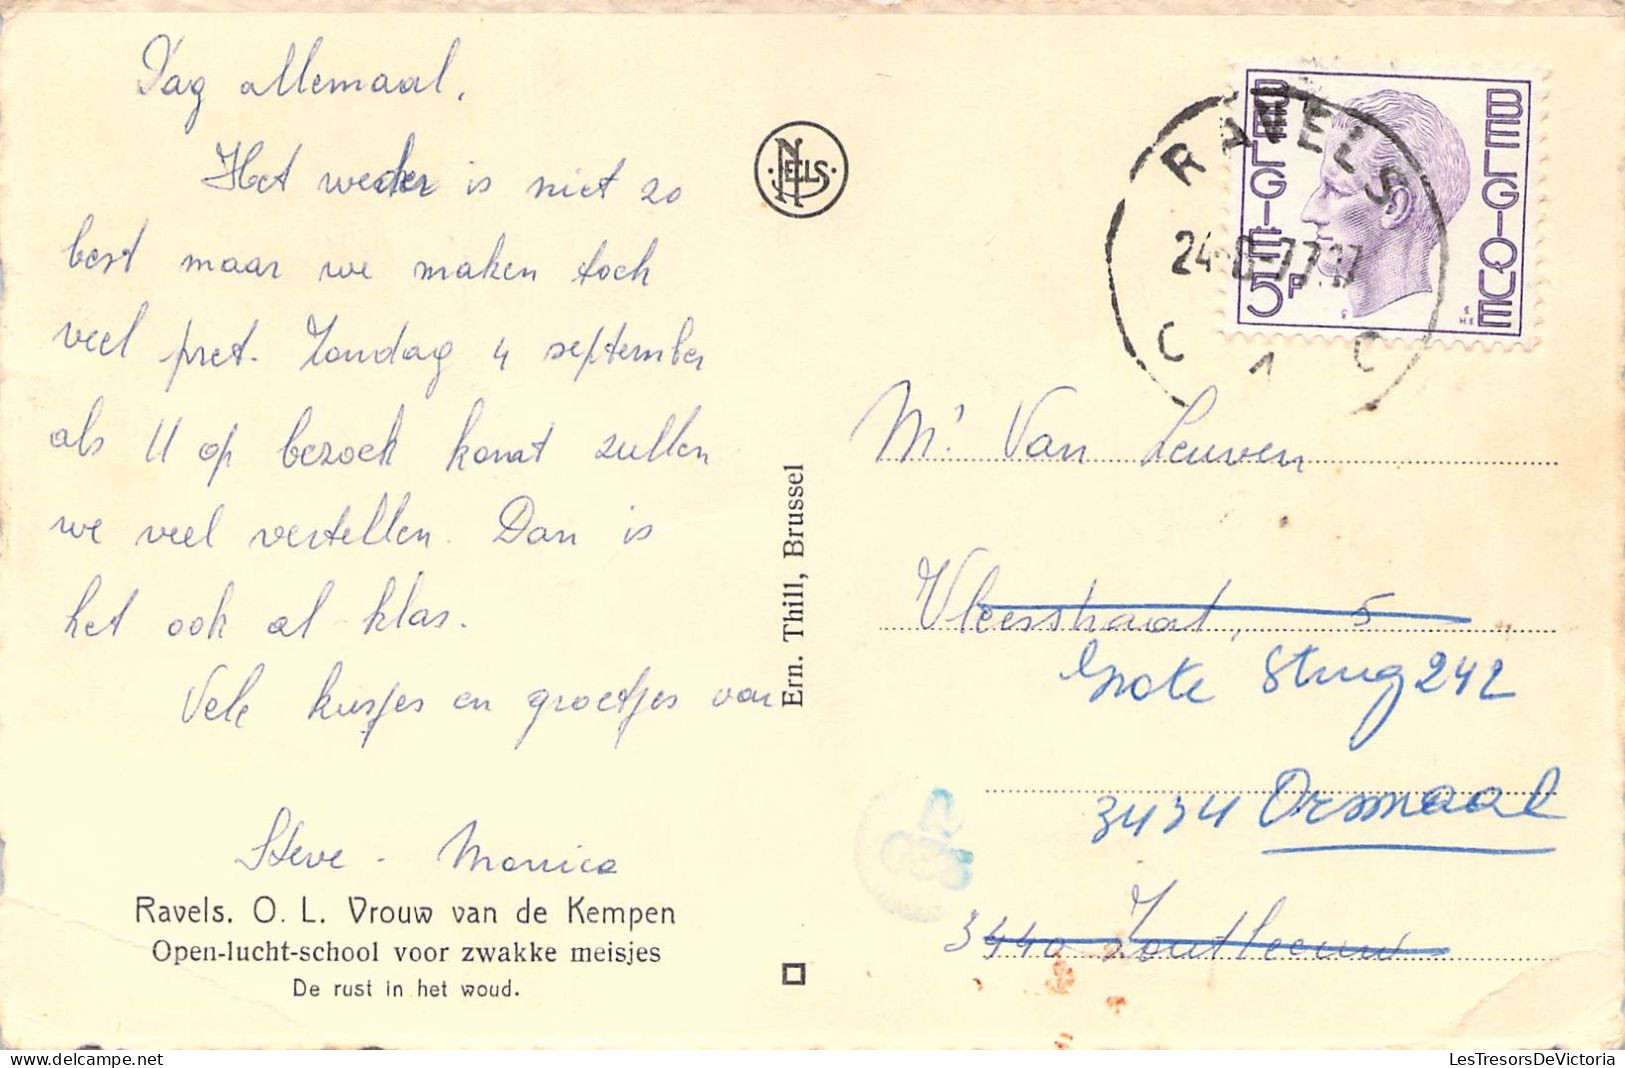 Dag allemaal,
Het weder is niet zo
best maar we maken toch
veel pret. Zondag 4 september
als U op bezoek komt zullen
we veel vertellen. Dan is
het ook al klas.
Vele kusjes en groetjes van
Steve - Monica
Ravels. O. L. Vrouw van de Kempen
Open-lucht-school voor zwakke meisjes
De rust in het woud.
NELS
Ern. Thill, Brussel
BELGIE
BELGIQUE
5F
RAVELS
24 -8-77
C 1 C
Mr Van Leuven
Vleesstraat, 5
Grote Stwg 242
3434 Ormaal
3440 Zoutleeuw
LesTresorsDeVictoria